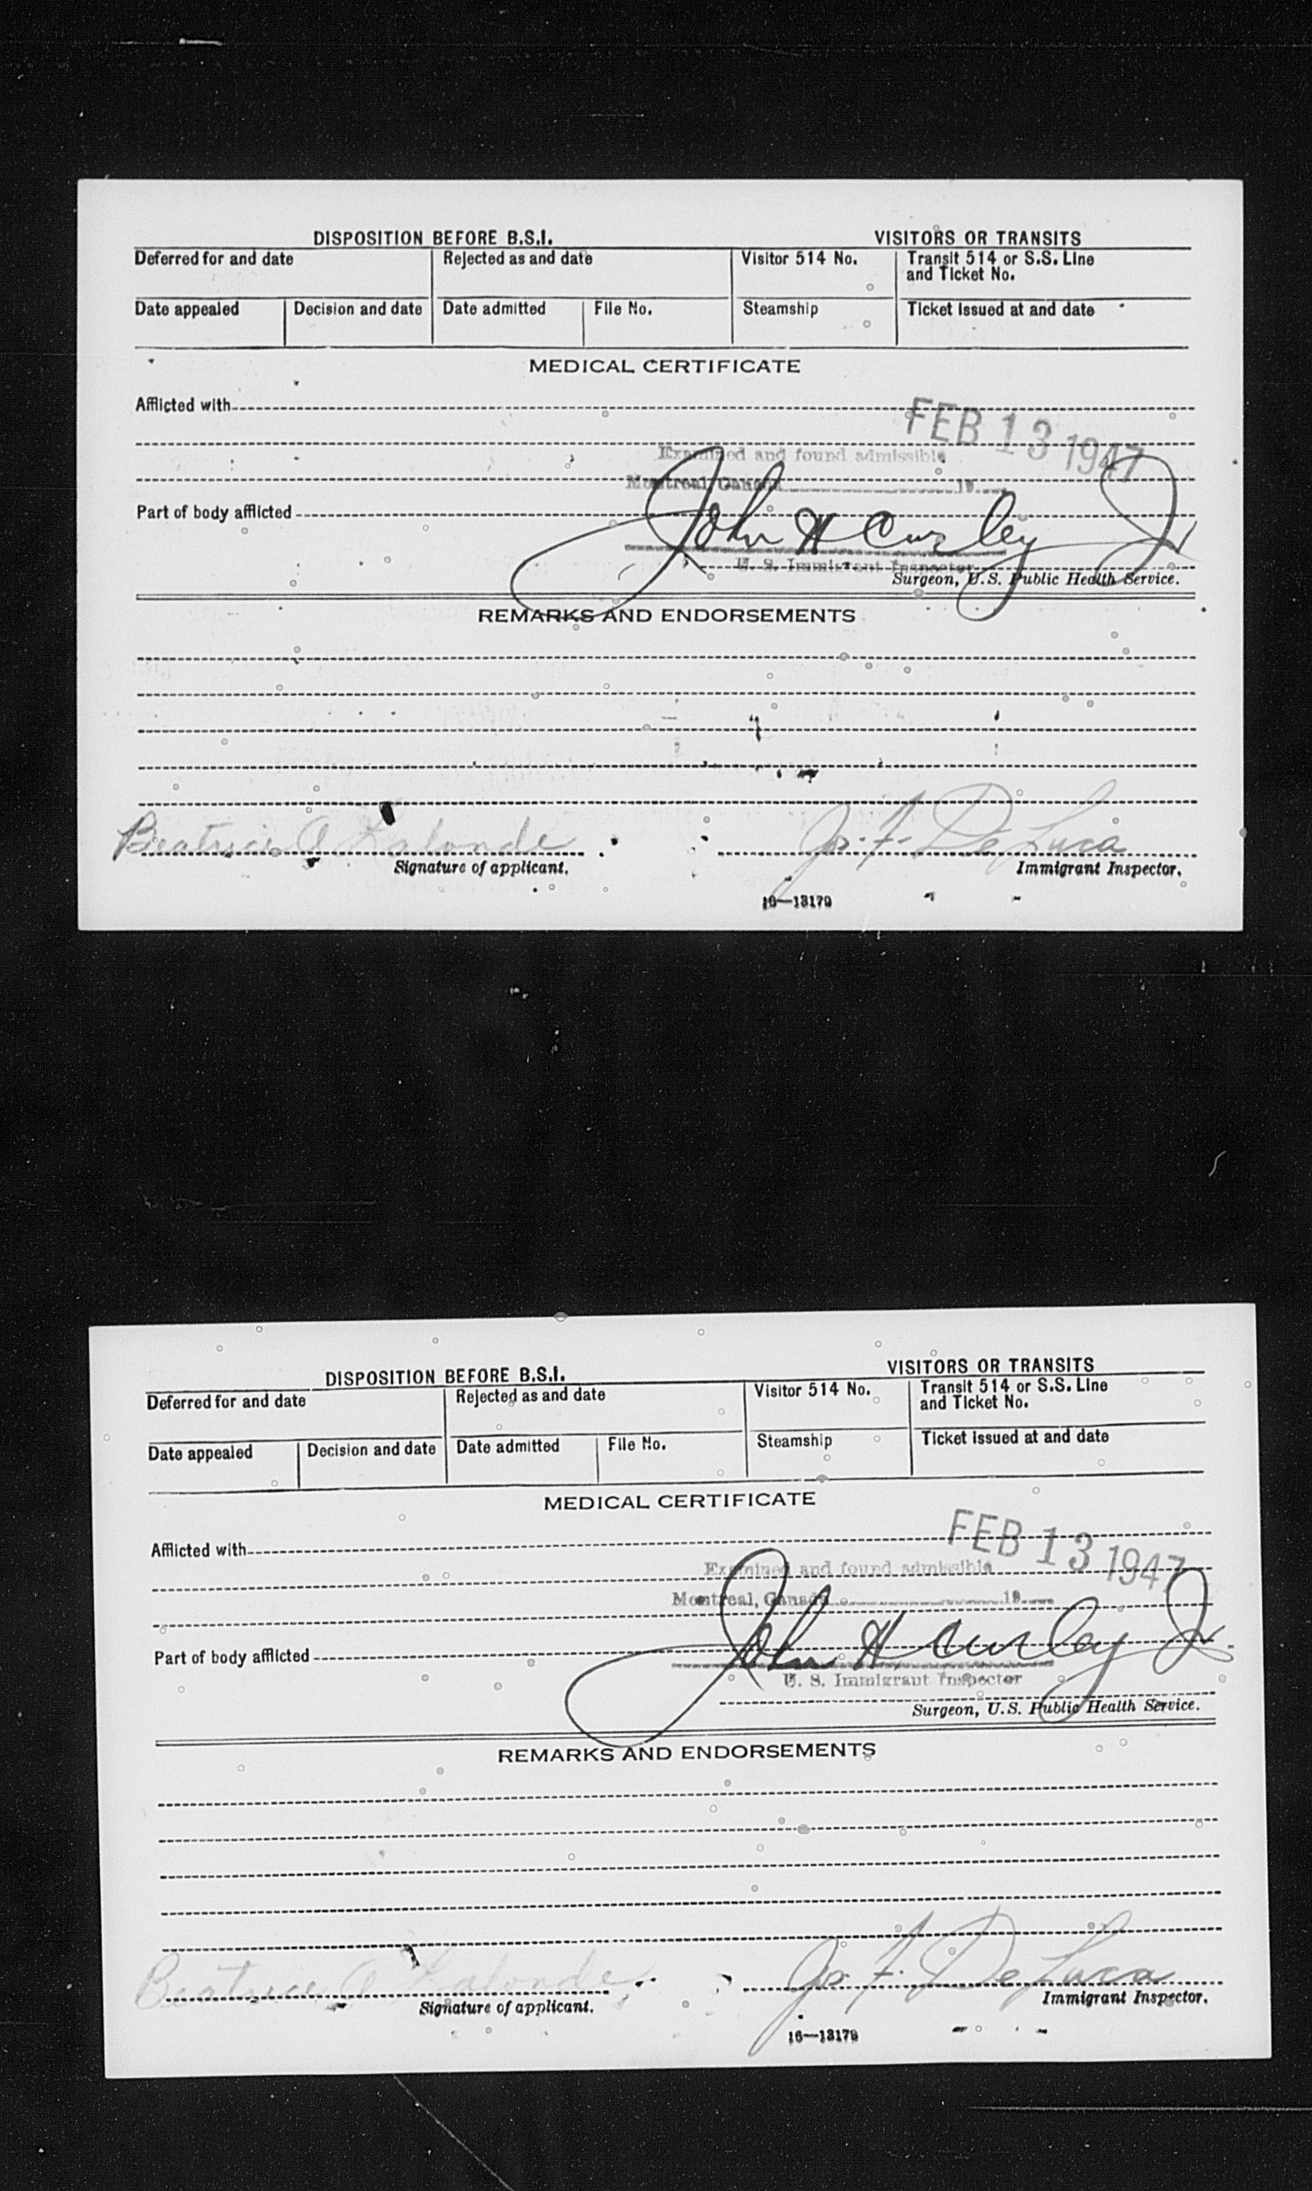 DISPOSITION BEFORE B.S.I. VISITORS OR TRANSITS
Deferred for and date Rejected as and date Visitor 514 No. Transit 514 or S.S. Line and Ticket No.
Date appealed Decision and date Date admitted File No. Steamship Ticket issued at and date
MEDICAL CERTIFICATE
Afflicted with
FEB 13 1947
Examined and found admissible
Montreal, Canada 19
Part of body afflicted
John H Curley Jr
U. S. Immigrant Inspector
Surgeon, U.S. Public Health Service.
REMARKS AND ENDORSEMENTS
Beatrice A Lalonde Jos. F. De Luca
Signature of applicant. Immigrant Inspector.
16—13179
DISPOSITION BEFORE B.S.I. VISITORS OR TRANSITS
Deferred for and date Rejected as and date Visitor 514 No. Transit 514 or S.S. Line and Ticket No.
Date appealed Decision and date Date admitted File No. Steamship Ticket issued at and date
MEDICAL CERTIFICATE
Afflicted with
FEB 13 1947
Examined and found admissible
Montreal, Canada 19
Part of body afflicted
John H Curley Jr.
U. S. Immigrant Inspector
Surgeon, U.S. Public Health Service.
REMARKS AND ENDORSEMENTS
Beatrice A Lalonde Jos. F. De Luca
Signature of applicant. Immigrant Inspector.
16—13179